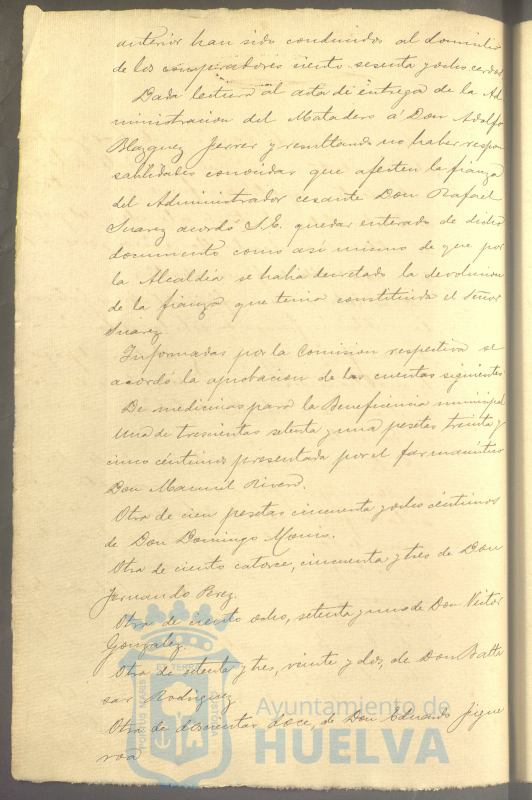 anterior han sido conducidos al domicilio
de los compradores ciento sesenta y ocho cerdos
Dada lectura al acta de entrega de la Ad
ministracion del Matadero á Don Adolfo
Blazquez Ferrer y resultando no haber respon
sabilidades conocidas que afecten la fianza
del Administrador cesante Don Rafael
Suarez acordó S.E. quedar enterado de dicho
documento como asi mismo de que por
la Alcaldia se habia decretado la devolucion
de la fianza que tenia constituida el Señor
Suarez
Informadas por la Comision respectiva se
acordó la aprobacion de las cuentas siguientes
De medicinas para la Beneficencia municipal
Una de trescientas setenta y una pesetas treinta y
cinco céntimos presentada por el farmaceútico
Don Manuel Rivero.
Otra de cien pesetas cincuenta y ocho céntimos
de Don Domingo
Otra de ciento catorce, cincuenta y tres de Don
Fernando Perez.
Otra de ciento ocho, setenta y una de Don Victor
Gonzalez.
Otra de setenta y tres, veinte y dos, de Don Balta
sar Rodriguez
Otra de doscientas doce, de Don Eduardo Figue
roa
Ayuntamiento de
HUELVA